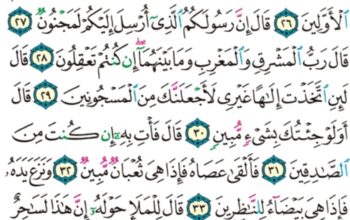 ٱلْأَوَّلِينَ ٢٦ قَالَ إِنَّ رَسُولَكُمُ ٱلَّذِىٓ أُرْسِلَ إِلَيْكُمْ لَمَجْنُونٌ ٢٧
قَالَ رَبُّ ٱلْمَشْرِقِ وَٱلْمَغْرِبِ وَمَا بَيْنَهُمَآ إِن كُنتُمْ تَعْقِلُونَ ٢٨ قَالَ
لَئِنِ ٱتَّخَذْتَ إِلَٰهًا غَيْرِى لَأَجْعَلَنَّكَ مِنَ ٱلْمَسْجُونِينَ ٢٩ قَالَ
أَوَلَوْ جِئْتُكَ بِشَىْءٍ مُّبِينٍ ٣٠ قَالَ فَأْتِ بِهِۦٓ إِن كُنتَ مِنَ
ٱلصَّٰدِقِينَ ٣١ فَأَلْقَىٰ عَصَاهُ فَإِذَا هِىَ ثُعْبَانٌ مُّبِينٌ ٣٢ وَنَزَعَ يَدَهُۥ
فَإِذَا هِىَ بَيْضَآءُ لِلنَّٰظِرِينَ ٣٣ قَالَ لِلْمَلَإِ حَوْلَهُۥٓ إِنَّ هَٰذَا لَسَٰحِرٌ